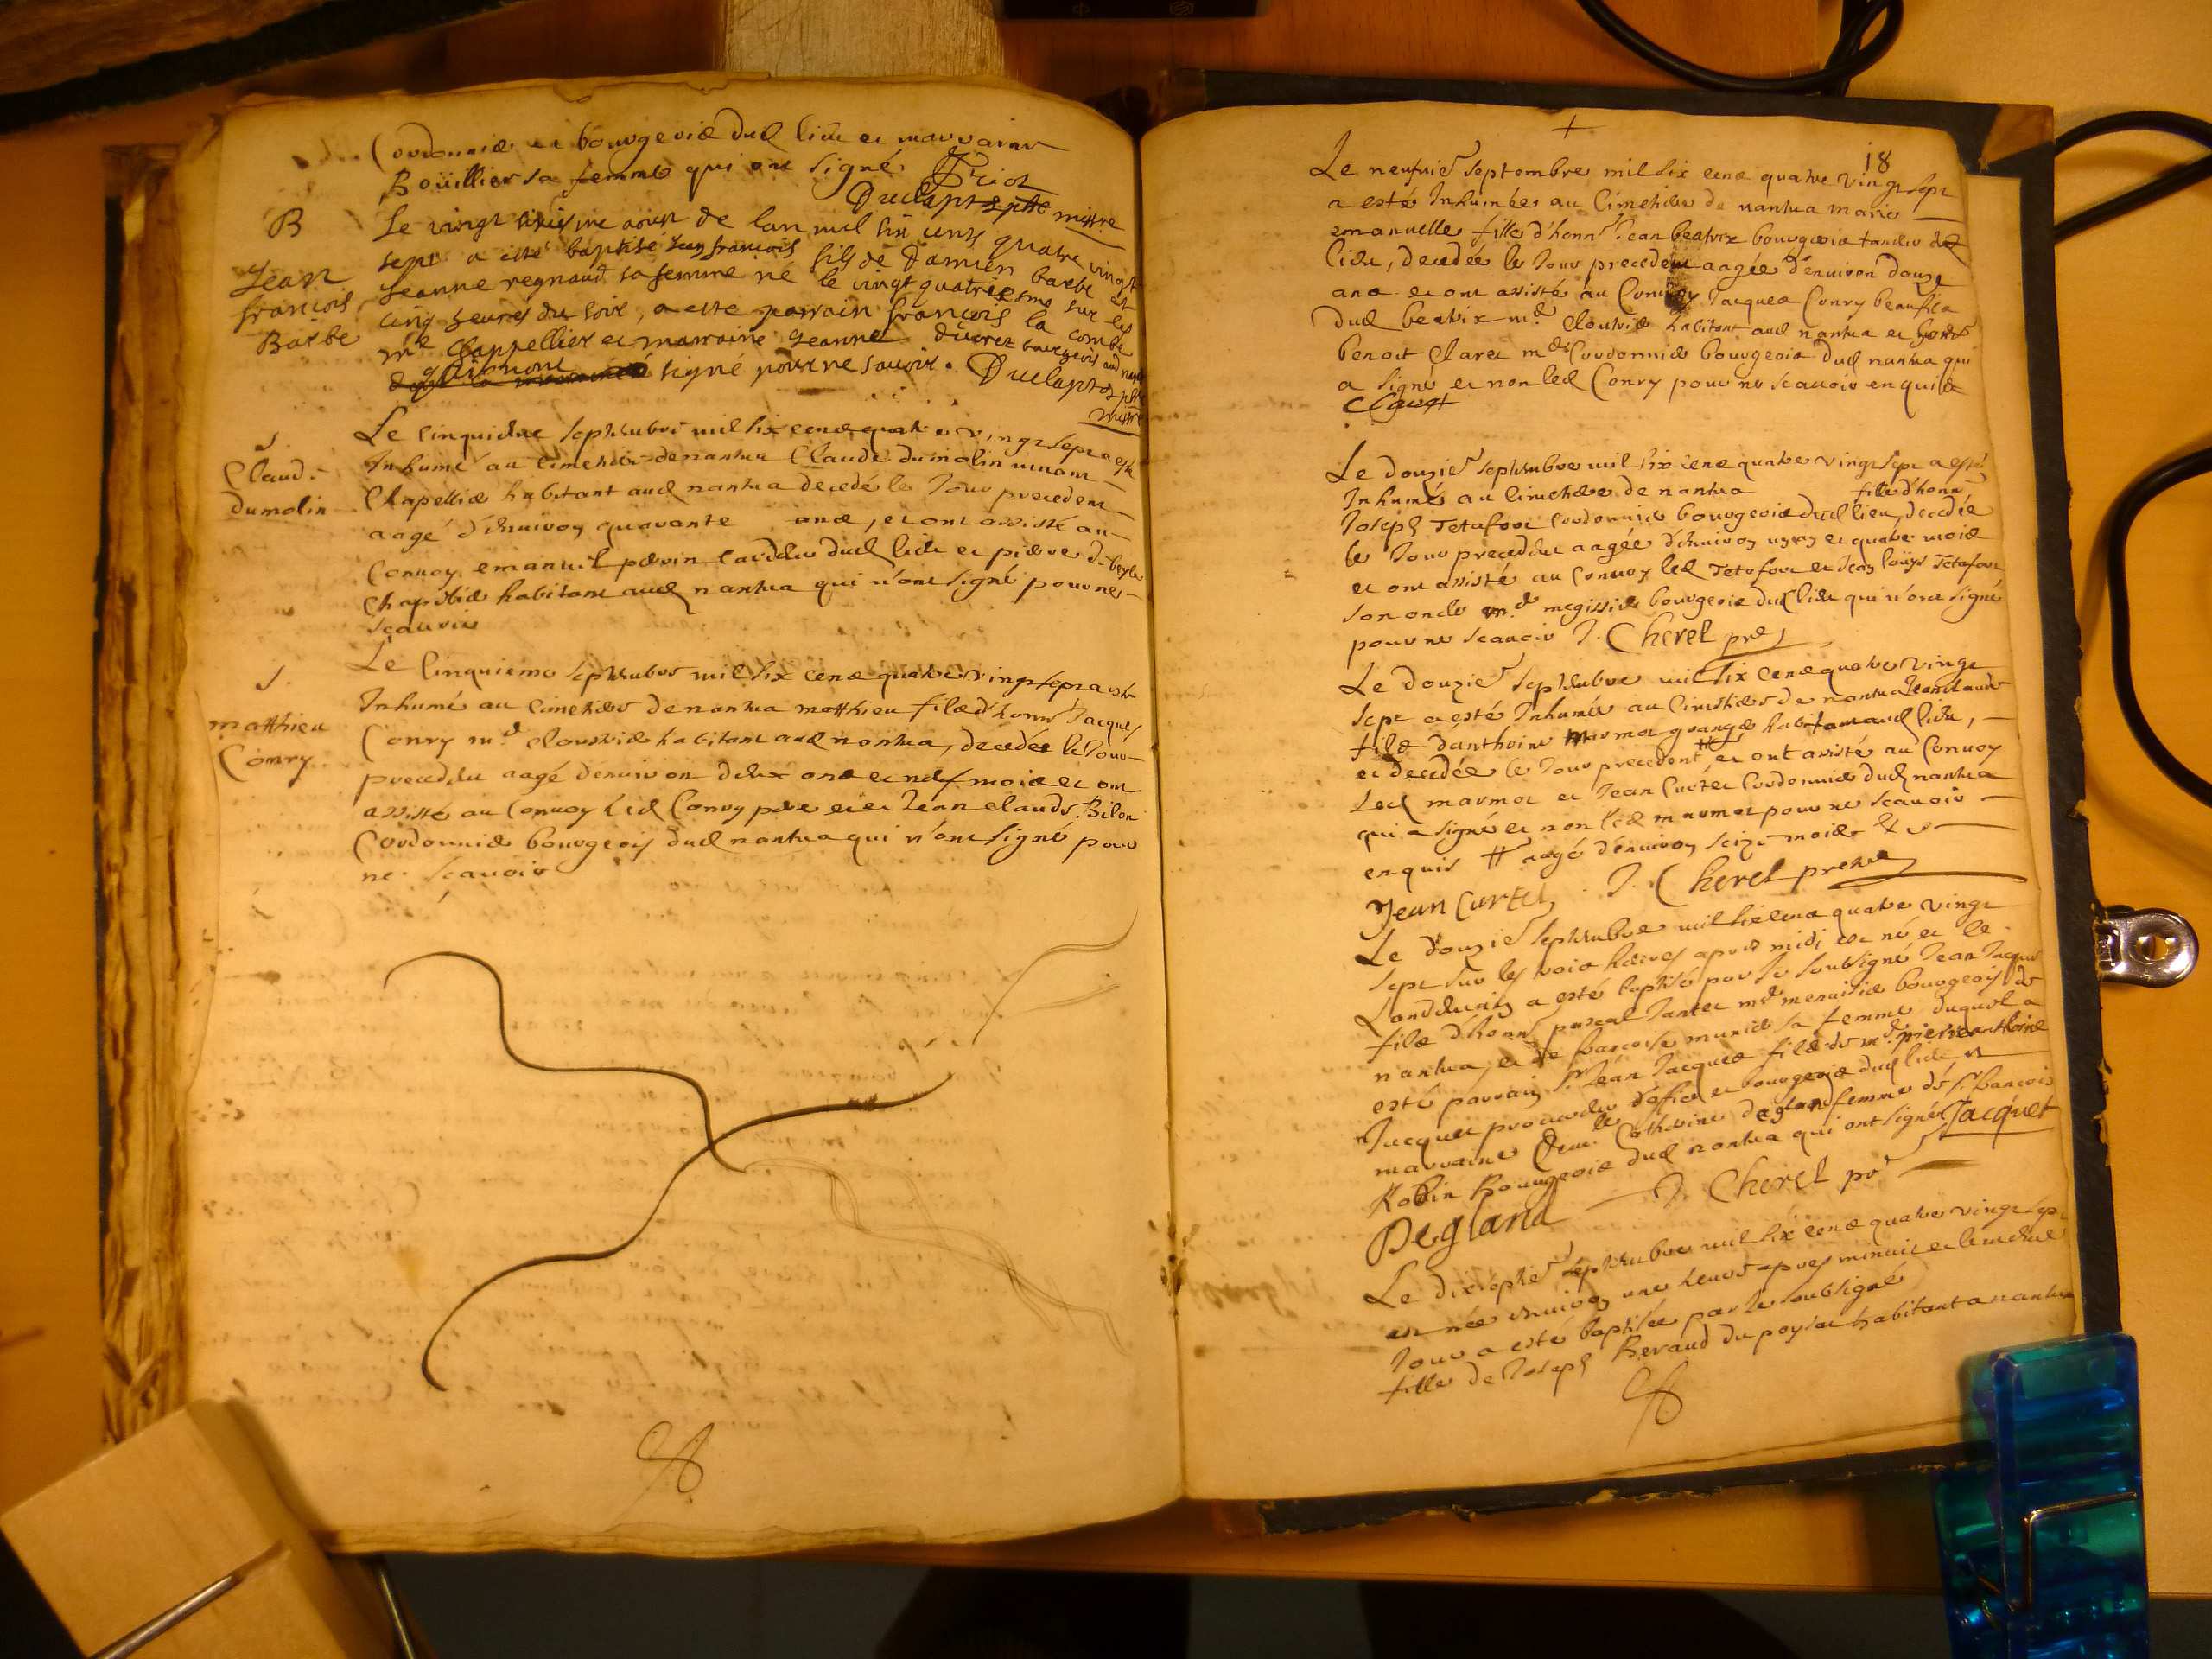 Cordonnier et bourgeois dud lieu et marraine
Boüillier sa femme qui ont signé Friot
Duclapt ptre missre
B
Le vingt sixiesme aoust de lan mil six cens quatre vingt
sept a esté baptisé Jean francois fils de Damien barbe et
Jean
francois
Barbe
Jeanne regnaud sa femme né le vingt quatriesme sur les
cinq heures du soir, a esté parrain francois la combe
md Chappellier et marraine Jeanne Ducret bourgeois aud nantua
signé pour ne scavoir. Duclapt ptre
missre
S.
Claud.
dumolin
Le cinquieme septembre mil six cens quatre vingt sept a esté
Inhumé au cimetiere de nantua Claude dumolin vivant
Chapellier habitant aud nantua decedé le Jour precedent
aagé d'environ quarante ans, et ont assisté au
Convoy emanuel perrin dud lieu et pierre
Chapellier habitant aud nantua qui n'ont signé pour ne
scavoir
S.
matthieu
Conry
Le Cinquieme septembre mil six cens quatre vingt sept a esté
Inhumé au cimetiere de nantua matthieu fils d'honn Jacques
Conry md cloutrier habitant aud nantua, decedée le Jour
precedent aagé denviron deux ans et neuf mois et ont
assisté au Convoy led Conry pere et Jean claude Bilon
Cordonnier bourgeois dud nantua qui n'ont signé pour
ne scavoir
18
Le neufvie septembre mil six cens quatre vingt sept
a esté Inhumée au cimetiere de nantua marie
emanuelle fille d'honn Jean beatrix bourgeois tandeur dud
lieu, decedée le Jour precedent aagée d'environ douze
ans et ont assisté au Convoy Jacques Conry beaufils
dud beatrix md cloutrier habitant aud nantua et
benoit Claret md Cordonnier bourgeois dud nantua qui
a signé et non led Conry pour ne scavoir enquis
Claret
Le douzie septembre mil six cens quatre vingt sept a esté
Inhumé au cimetiere de nantua fille d'honn
Joseph Tetafort Cordonnier bourgeois dud lieu, decedée
le Jour precedent aagée d'environ un an et quatre mois
et ont assisté au Convoy led Tetafort et Jean Louys Tetafort
son oncle md megissier bourgeois dud lieu qui n'ont signé
pour ne scavoir J. Cherel pre
Le douzie septembre mil six cens quatre vingt
sept a esté Inhumé au cimetiere de nantua Jean claude
fils d'anthoine marmot habitant aud lieu,
et decedée le Jour precedent # et ont assisté au Convoy
Led marmot et Jean Curtet Cordonnier dud nantua
qui a signé et non led marmot pour ne scavoir
enquis # aagé d'environ seize mois
Jean Curtet J. Cherel prettre
Le douzie septembre mil six cens quatre vingt
sept sur les trois heures apres midi est né et le
Landemain a esté baptisé par le soubsigné Jean Jacques
fils d'honn pascal Jantet md menuisier bourgeois de
nantua, et de francoise munier sa femme duquel a
esté parrain Sr Jean Jacques fils de md pierre anthoine
Jacquet procureur d'office et bourgeois dud lieu et
marraine Dem.lle Catherine degland femme de Sr francois
Robin Bourgeois dud nantua qui ont signé Jacquet
Degland J. Cherel pr
Le dixsepties septembre mil six cens quatre vingt sept
est née environ une heure apres minuit et le mesme
Jour a esté baptisée par le soubsigné
fille de Joseph Beraud du poysat habitant a nantua